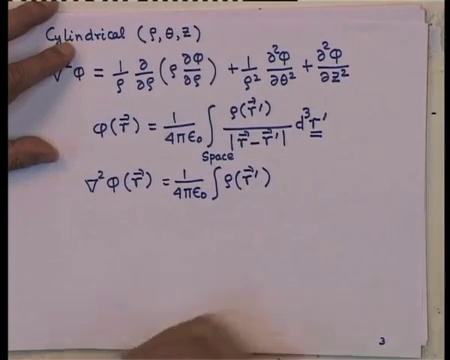 Cylindrical (ρ, θ, z)
∇²φ = 1/ρ ∂/∂ρ (ρ ∂φ/∂ρ) + 1/ρ² ∂²φ/∂θ² + ∂²φ/∂z²
φ(r⃗) = 1/4πϵ₀ ∫ ρ(r⃗′)/|r⃗ − r⃗′| d³r′
Space
∇²φ(r⃗) = 1/4πϵ₀ ∫ ρ(r⃗′)
3